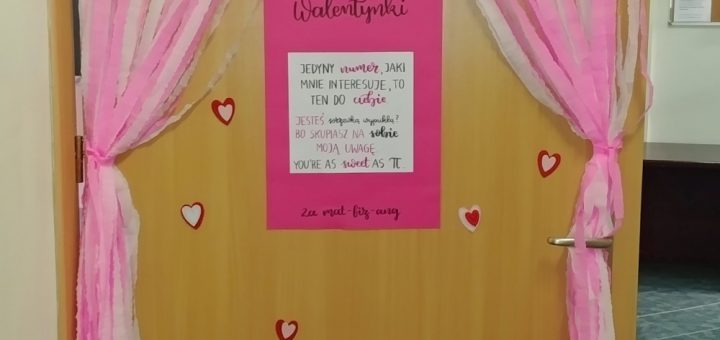 Walentynki
JEDYNY numer, JAKI
MNIE INTERESUJE, TO
TEN DO ciebie
JESTEŚ soczewką wypukłą?
BO SKUPIASZ NA sobie
MOJĄ UWAGĘ
YOU'RE AS sweet AS π.
2a mat-fiz-ang